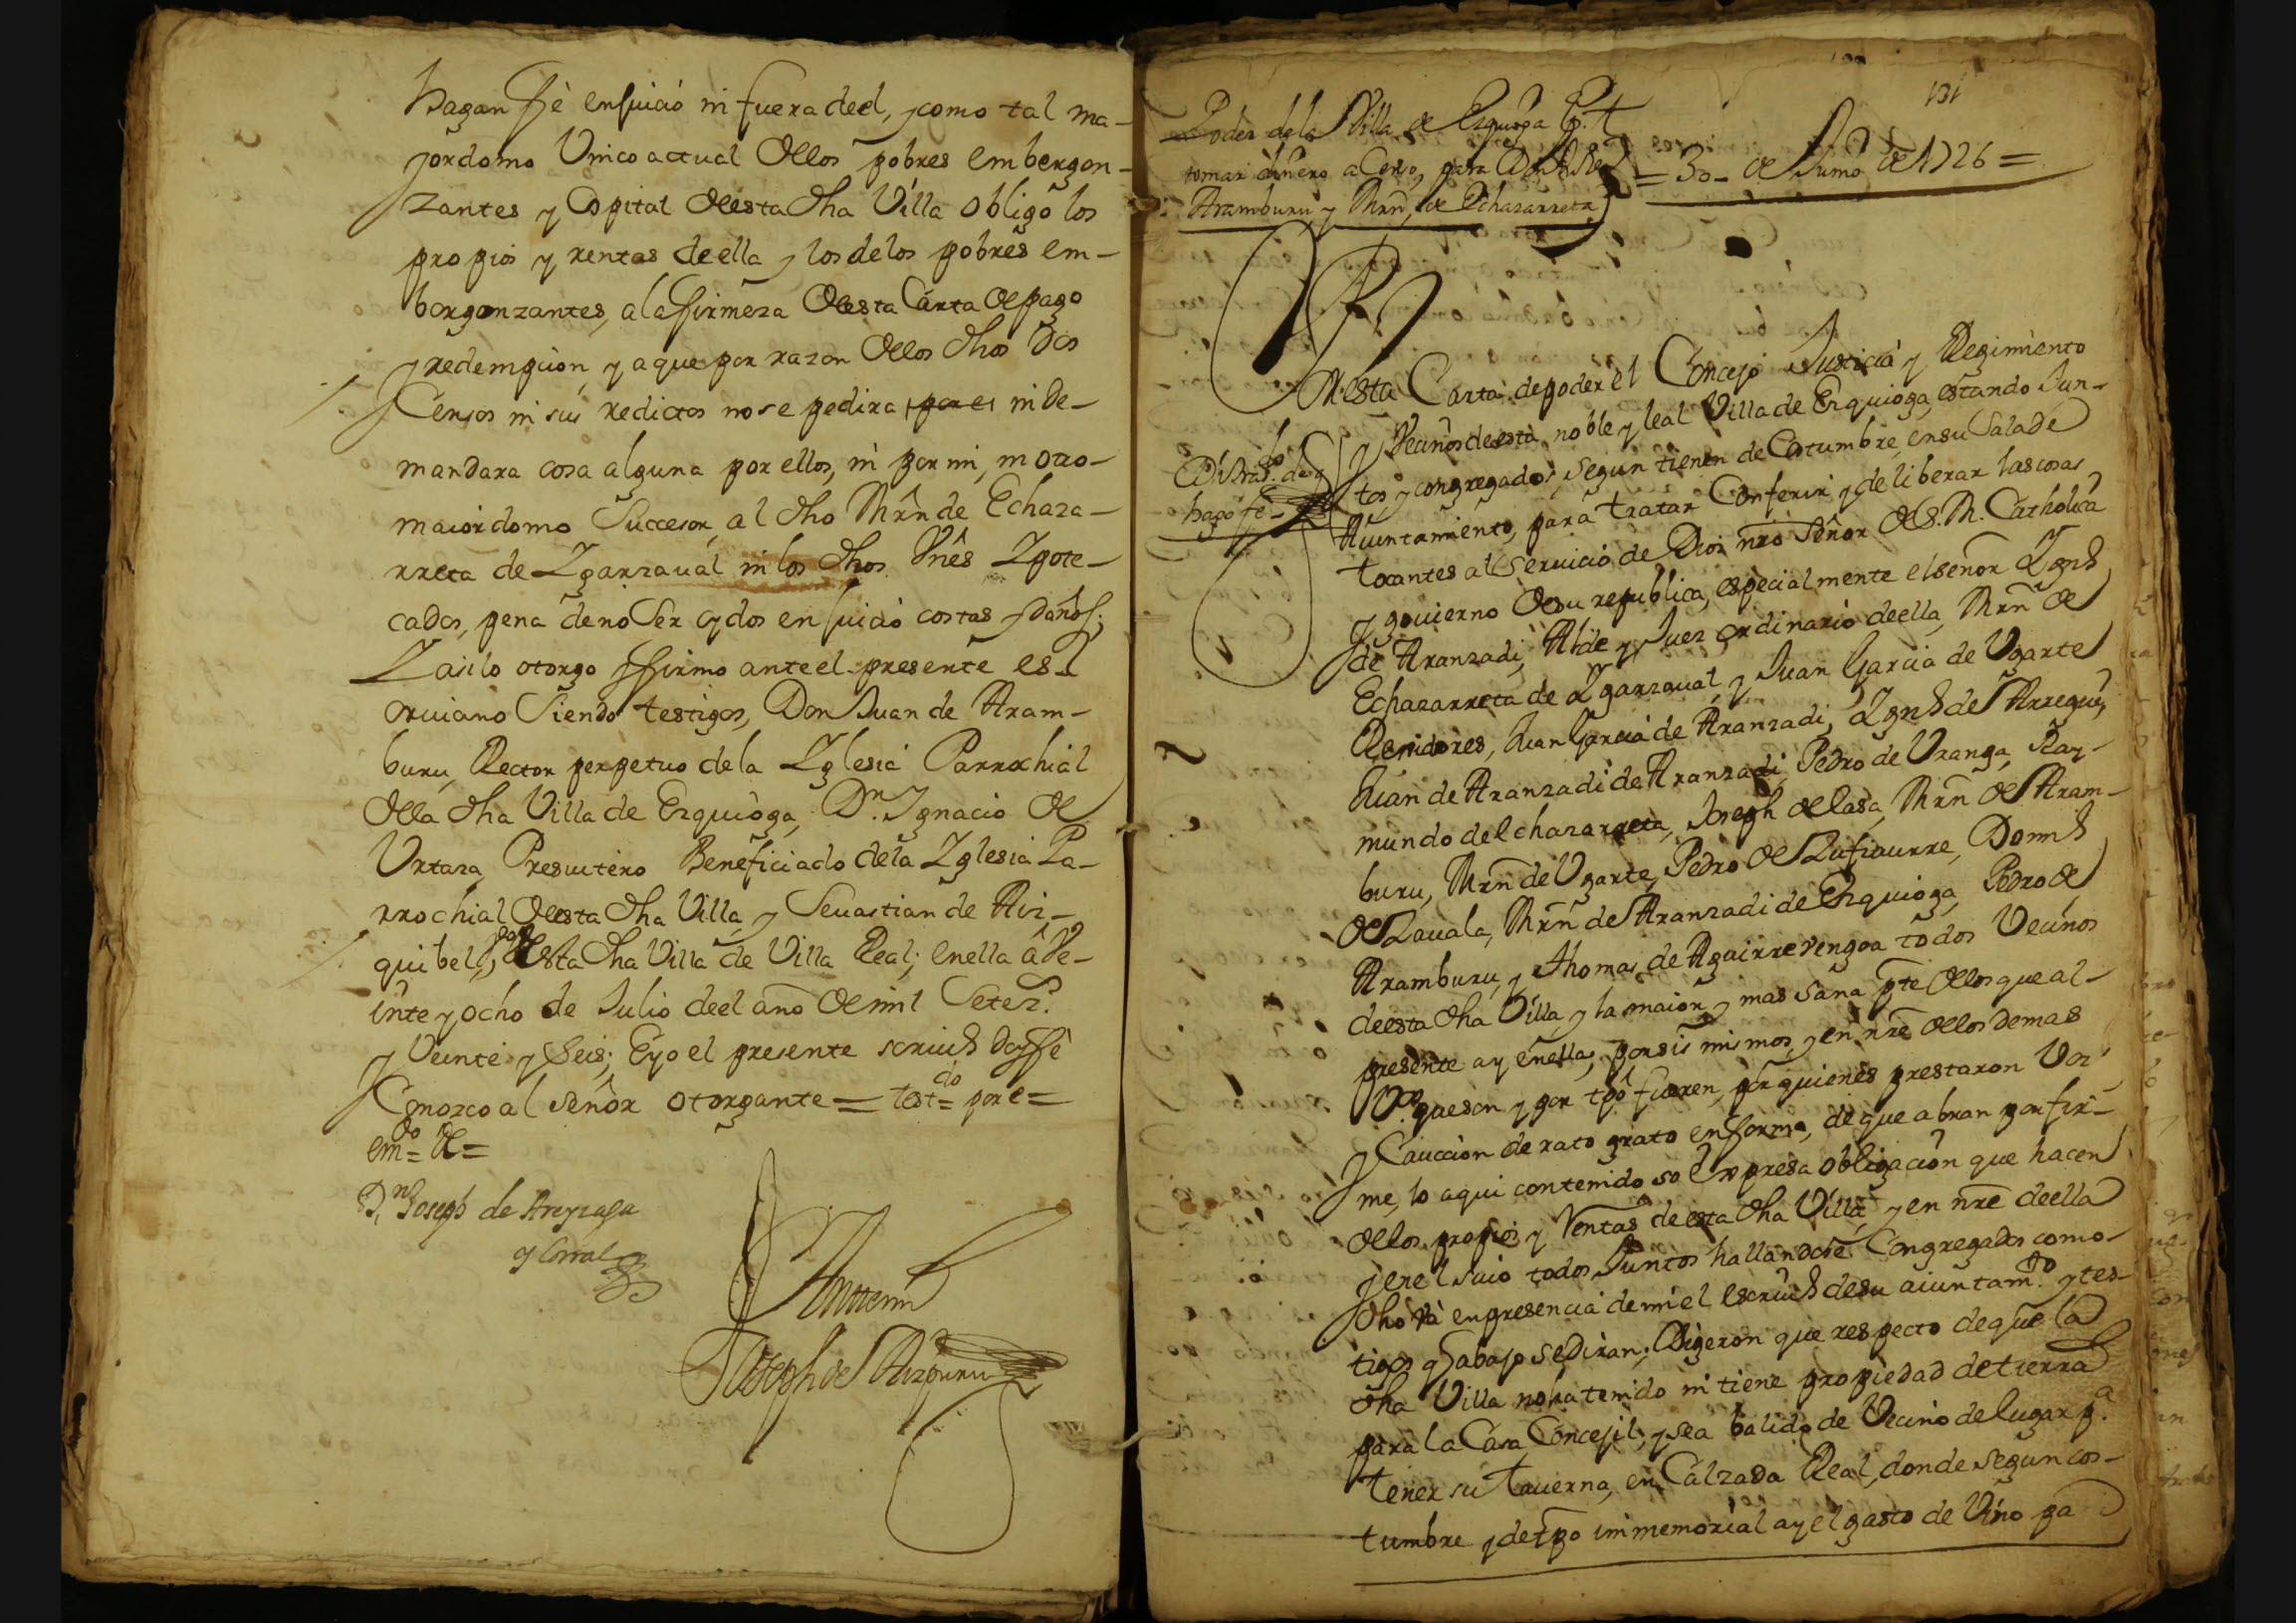 hagan fè en juicio ni fuera deel, y como tal ma-
jordomo Unico actual de los pobres embergon-
zantes y Ospital de esta dha Villa obligo los
propios y rentas de ella y los de los pobres em-
bergonzantes, a la firmeza de esta Carta de pago
y redempcion, y a que por razon de los dhos dos
Censos ni sus redictos no se pedira por e ni de-
mandara cosa alguna por ellos, ni por mi, ni otro
maiordomo Succesor, al dho Mrn de Echaza-
rreta de Ygarzaval ni los dhos Vnês Ypote-
cados, pena de no Ser oydos en juicio costas y daños;
Y asi lo otorgo y firmo ante el presente es-
crivano Siendo testigos, Don Juan de Aram-
buru, Rector perpetuo de la Yglesia Parrochial
de la dha Villa de Ezquioga, Dn. Ygnacio de
Urtaza, Presvitero Beneficiado de la Yglesia Pa-
rrochial de esta dha Villa, y Sevastian de Aiz-
quibel, de esta dha Villa de Villa Real; en ella â Ve-
inte y ocho de Julio de el año de mil Setez.
y Veinte y Seis; E yo el presente scriv. doy fè
Conozco al Señor otorgante = testdo = por e =
emdo = de =
Dn. Joseph de Areyzaga
y Corral
Ante mi
Joseph de Aizpuru
101
Poder de la Villa de Ezquioga
tomar dinero a Censo, para
Aramburu y Mrn. de Echazarreta
= 30 - de Junio de 1726 =
En esta Carta de poder el Concejo Justicia y Regimiento
y Vecinos de esta noble y leal Villa de Ezquioga, estando Jun-
tos y congregados, segun tienen de Costumbre, en su Sala de
hago fe
Aiuntamiento, para tratar Conferir y deliberar las cosas
tocantes al Servicio de Dios nro Señor de S. M. Catholica
y govierno de su republica, especialmente el señor Ygn.
de Aranzadi, Alde y Juez ordinario de ella, Mrn de
Echazarreta de Ygarzaval, y Juan Garcia de Ugarte
Regidores, Juan Garcia de Aranzadi, Ygn. de Arregui,
Juan de Aranzadi de Aranzadi, Pedro de Uranga, Ray-
mundo de Echazarreta, Joseph de Lasa, Mrn de Aram-
buru, Mrn de Ugarte, Pedro de Lufiaurre, Dom.
de Zavala, Mrn de Aranzadi de Ezquioga, Pedro de
Aramburu, y Thomas de Aguirrevengoa todos Vecinos
de esta dha Villa y la maior y mas sana pte de los que al
presente ay en ella, por si mismos, y en nre de los demas
Vos. que son y por tpô fueren, por quienes prestaron Voz
y Caucion de rato grato en forma, de que abran por fir-
me, lo aqui contenido so Expresa obligacion que hacen
de los propios y Rentas de esta dha Villa, y en nre de ella
y en el suio todos Juntos hallandose Congregados como
dho và en presencia de mi el escriv. de su aiuntamto. y tes-
tigos q abajo se diran; Digeron que respecto de que la
dha Villa no ha tenido ni tiene propiedad de tierra
para la Casa Concejil, y se a balido de Vecino de lugar pa.
tener su Taverna, en Calzada Real, donde segun cos-
tumbre y de tpo immemorial ay el gasto de Vino pa